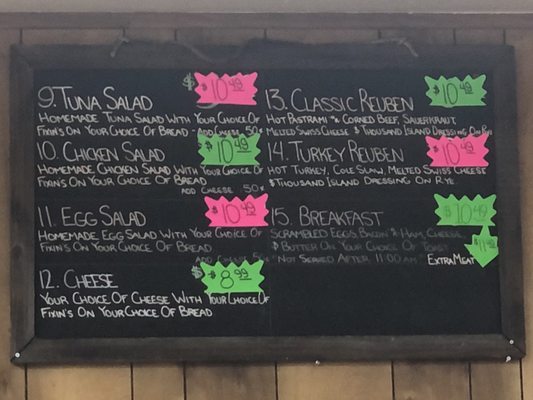 9. TUNA SALAD $10.49
HOMEMADE TUNA SALAD WITH YOUR CHOICE OF
FIXIN'S ON YOUR CHOICE OF BREAD - ADD CHEESE 50¢
10. CHICKEN SALAD 10.49
HOMEMADE CHICKEN SALAD WITH YOUR CHOICE OF
FIXIN'S ON YOUR CHOICE OF BREAD
ADD CHEESE 50¢
11. EGG SALAD $10.49
HOMEMADE EGG SALAD WITH YOUR CHOICE OF
FIXIN'S ON YOUR CHOICE OF BREAD
ADD CHEESE 50¢
12. CHEESE $8.99
YOUR CHOICE OF CHEESE WITH YOUR CHOICE OF
FIXIN'S ON YOUR CHOICE OF BREAD
13. CLASSIC REUBEN $10.49
HOT PASTRAMI OR CORNED BEEF, SAUERKRAUT,
MELTED SWISS CHEESE & THOUSAND ISLAND DRESSING ON RYE
14. TURKEY REUBEN $10.49
HOT TURKEY, COLE SLAW, MELTED SWISS CHEESE
& THOUSAND ISLAND DRESSING ON RYE
15. BREAKFAST $10.49
SCRAMBLED EGGS BACON OR HAM, CHEESE
& BUTTER ON YOUR CHOICE OF TOAST
*NOT SERVED AFTER 11:00 AM EXTRA MEAT